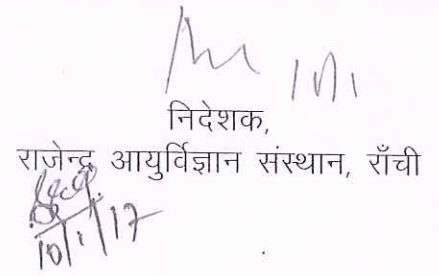 निदेशक,
राजेन्द्र आयुर्विज्ञान संस्थान, राँची
10/1/17